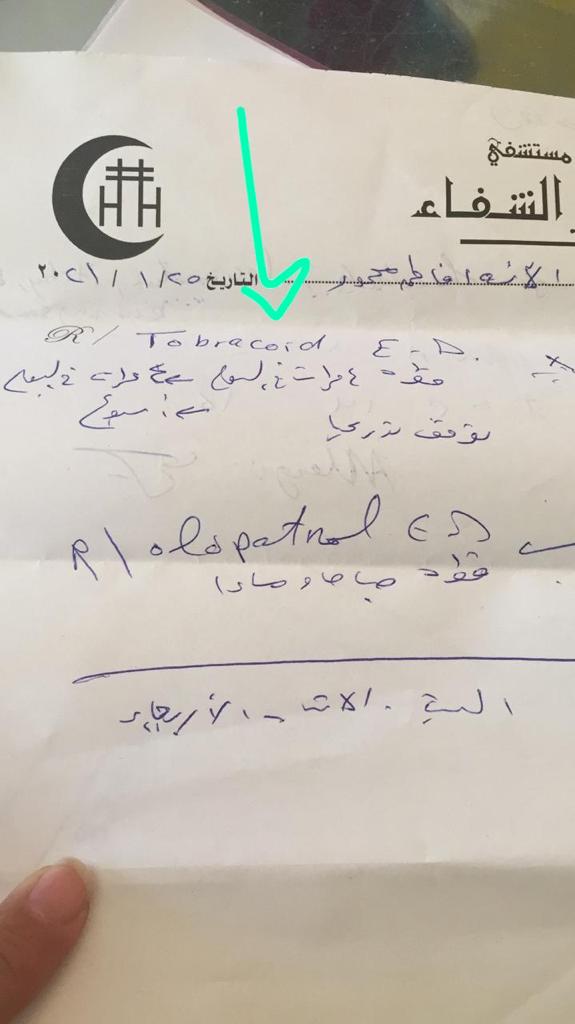 مستشفى
الشفاء
الآنسة / فاطمة محمود التاريخ ٢٠٢١ / ١ / ٢٥
R/ Tobracoid E.D.
قطرة ٤ مرات في اليوم مرات في اليوم
أسبوع
توقف تدريجيا
R \ olopatnol ED
قطرة صباحا ومساء
السبت - الاثنين - الأربعاء